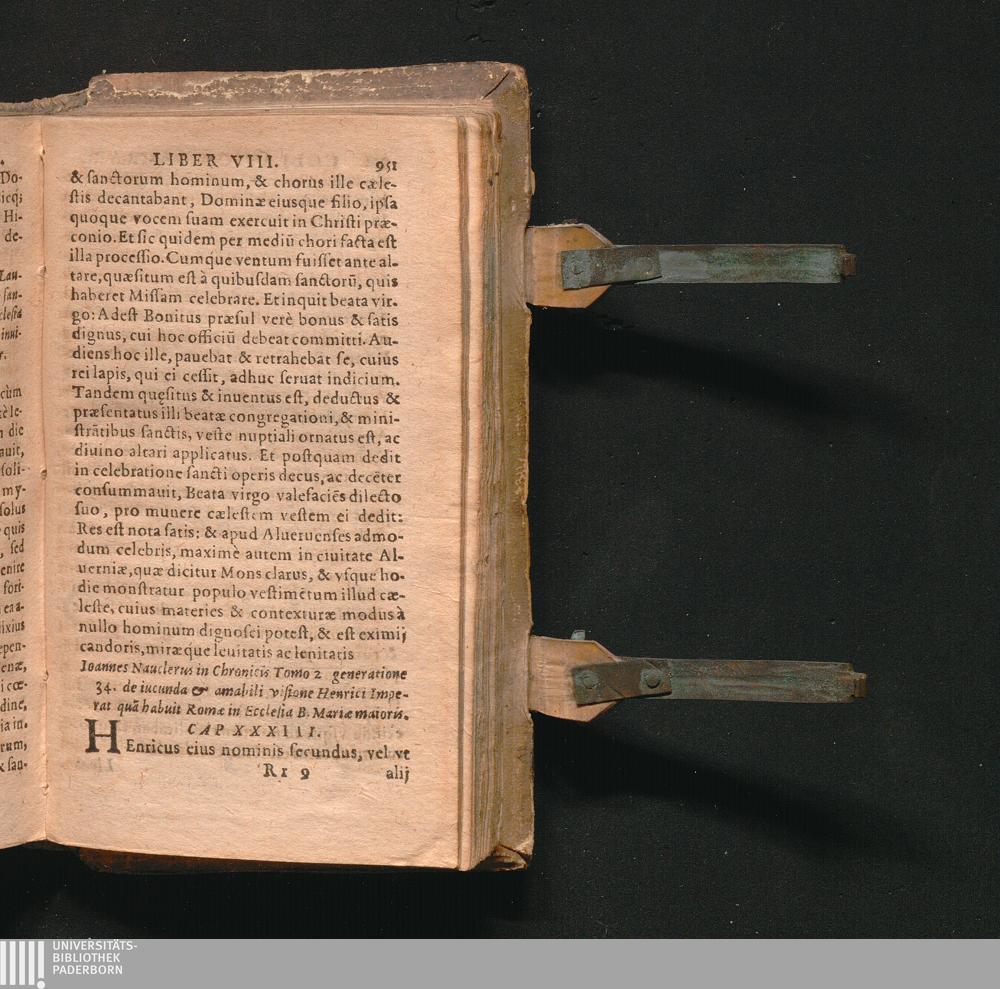 LIBER VIII. 951
& sanctorum hominum, & chorus ille cæle-
stis decantabant, Dominæ eiusque filio, ipsa
quoque vocem suam exercuit in Christi præ-
conio. Et sic quidem per mediū chori facta est
illa processio. Cumque ventum fuisset ante al-
tare, quæsitum est à quibusdam sanctorū, quis
haberet Missam celebrare. Et inquit beata vir-
go: Adest Bonitus præsul verè bonus & satis
dignus, cui hoc officiū debeat committi. Au-
diens hoc ille, pauebat & retrahebat se, cuius
rei lapis, qui ei cessit, adhuc seruat indicium.
Tandem quęsitus & inuentus est, deductus &
præsentatus illi beatæ congregationi, & mini-
strātibus sanctis, veste nuptiali ornatus est, ac
diuino altari applicatus. Et postquam dedit
in celebratione sancti operis decus, ac decēter
consummauit, Beata virgo valefaciēs dilecto
suo, pro munere cælestem vestem ei dedit:
Res est nota satis: & apud Aluernenses admo-
dum celebris, maximè autem in ciuitate Al-
uerniæ, quæ dicitur Mons clarus, & vsque ho-
die monstratur populo vestimētum illud cæ-
leste, cuius materies & contexturæ modus à
nullo hominum dignosci potest, & est eximij
candoris, miræque leuitatis ac lenitatis
Ioannes Nauclerus in Chronicis Tomo 2 generatione
34. de iucunda & amabili visione Henrici Impe-
rat quā habuit Romæ in Ecclesia B. Mariæ maioris.
CAP XXXIII.
HEnricus eius nominis secundus, vel vt
Rr 9 alij
Do-
icq;
Hi-
de-
Lau-
san-
clesia
inui-
r.
cùm
die
auit,
soli-
my-
solus
quis
, sed
enire
fort-
ixius
epen-
enæ,
i cœ-
dine,
ia in.
rum,
& san-
UNIVERSITÄTS-
BIBLIOTHEK
PADERBORN